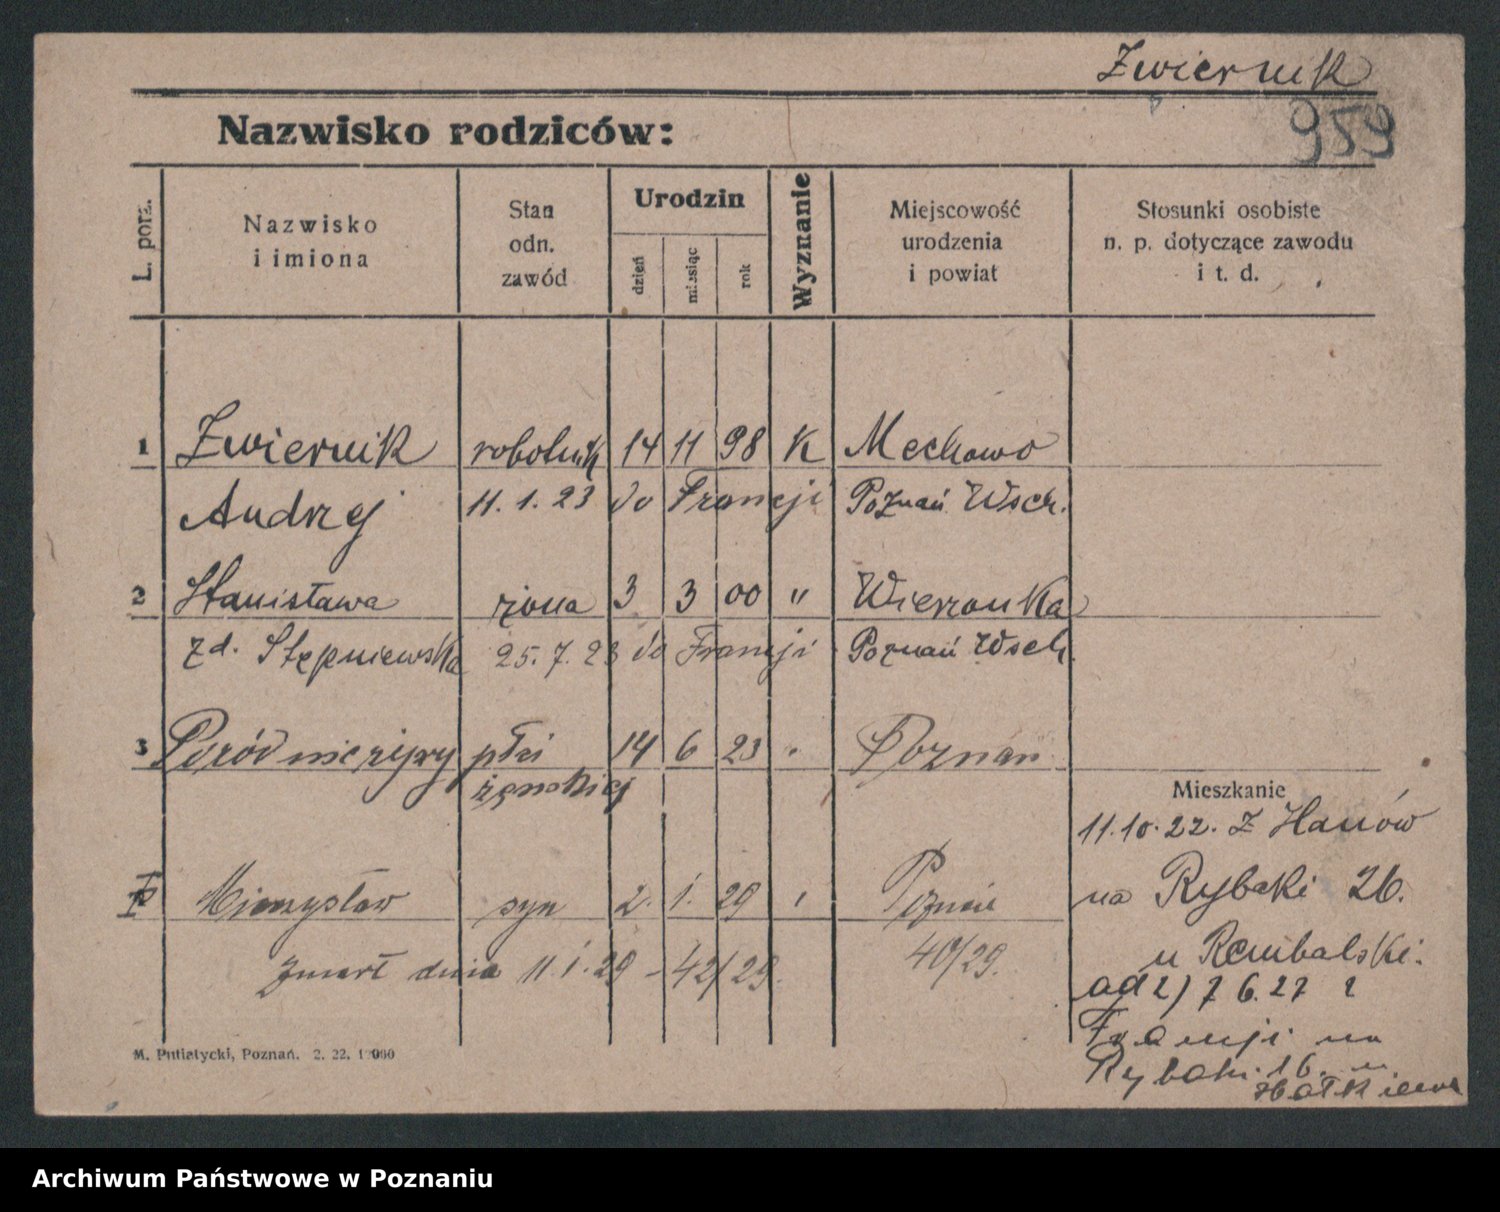 Zwiernik
959
Nazwisko rodziców:
L. porz.
Nazwisko
i imiona
Stan
odn.
zawód
Urodzin
dzień
miesiąc
rok
Wyznanie
Miejscowość
urodzenia
i powiat
Stosunki osobiste
n. p. dotyczące zawodu
i t. d.
1 Zwiernik robotnik 14 11 98 K Mechowo
Andrzej 11.1.23 do Francji Poznań Wsch.
2 Stanisława żona 3 3 00 " Wierzonka
zd. Stępniewska 25.7.23 do Francji Poznań Wsch.
3 Poród nieżywy płci 14 6 23 " Poznań
żeńskiej
Mieszkanie
11.10.22. z
Mieczysław syn 2. 1. 29 " Poznań
na Rybaki 26.
zmarł dnia 11.1.29 - 42/29. 40/29.
u Rembalski.
ad 2) 7 6.27 z
Francji na
Rybaki 16. u
M. Putiatycki, Poznań. 2. 22.
Archiwum Państwowe w Poznaniu